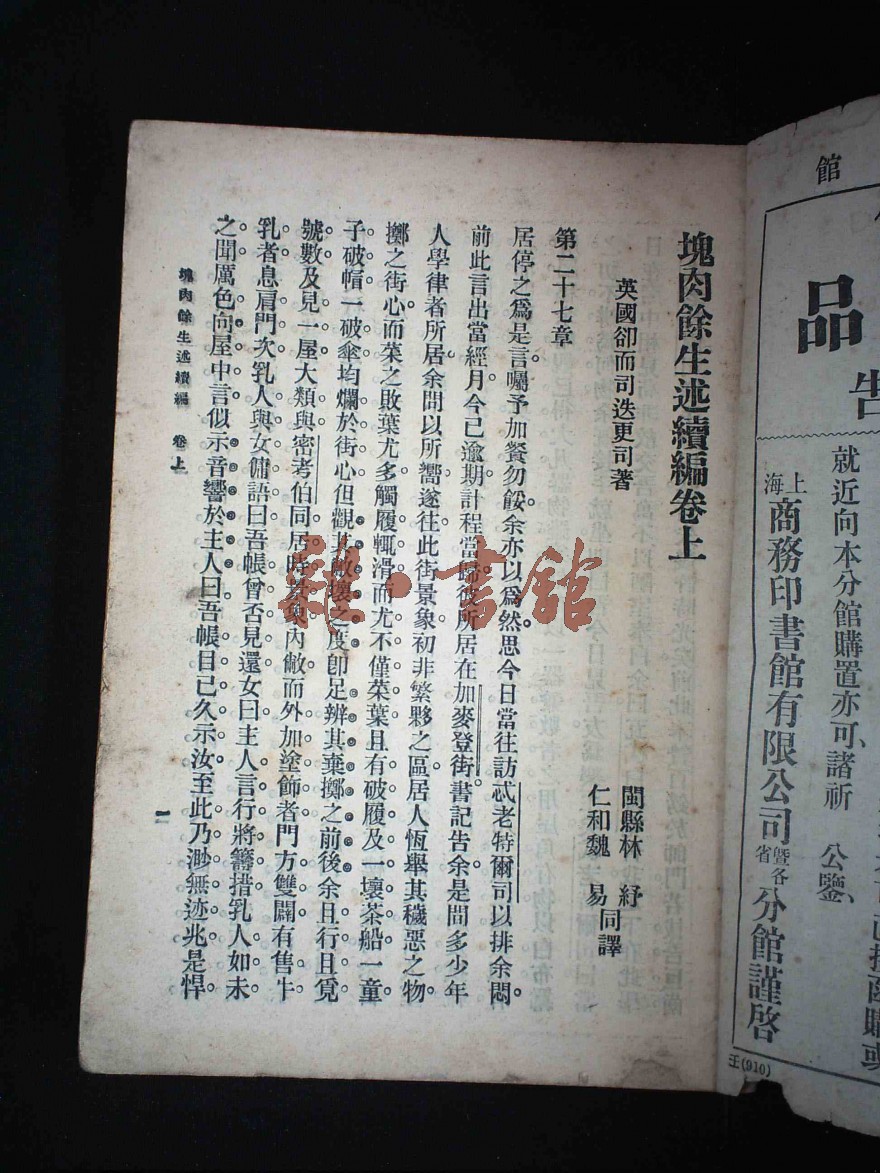 塊肉餘生述續編卷上
英國卻而司迭更司著
閩縣林　紓
仁和魏　易同譯
第二十七章
居停之爲是言囑予加餐勿餒余亦以爲然思今日當往訪忒老特爾司以排余悶
前此言出當經月今已逾期計程當歸彼所居在加麥登街書記告余是間多少年
人學律者所居余問以所嚮遂往此街景象初非繁夥之區居人恆舉其穢惡之物
擲之街心而菜之敗葉尤多觸履輒滑而尤不僅菜葉且有破履及一壞茶船一童
子破帽一破傘均爛於街心但觀其敝壞之度卽足辨其棄擲之前後余且行且覓
號數及見一屋大類與密考伯同居時景象內敝而外加塗飾者門方雙闢有售牛
乳者息肩門次乳人與女傭語曰吾帳曾否見還女曰主人言行將籌措乳人如未
之聞厲色向屋中言似示音響於主人曰吾帳目已久示汝至此乃渺無迹兆是悍
塊肉餘生述續編　卷上
一
雜·書館
館
品
告
就近向本分館購置亦可諸祈　公鑒
上海商務印書館有限公司暨各省分館謹啓
王(910)